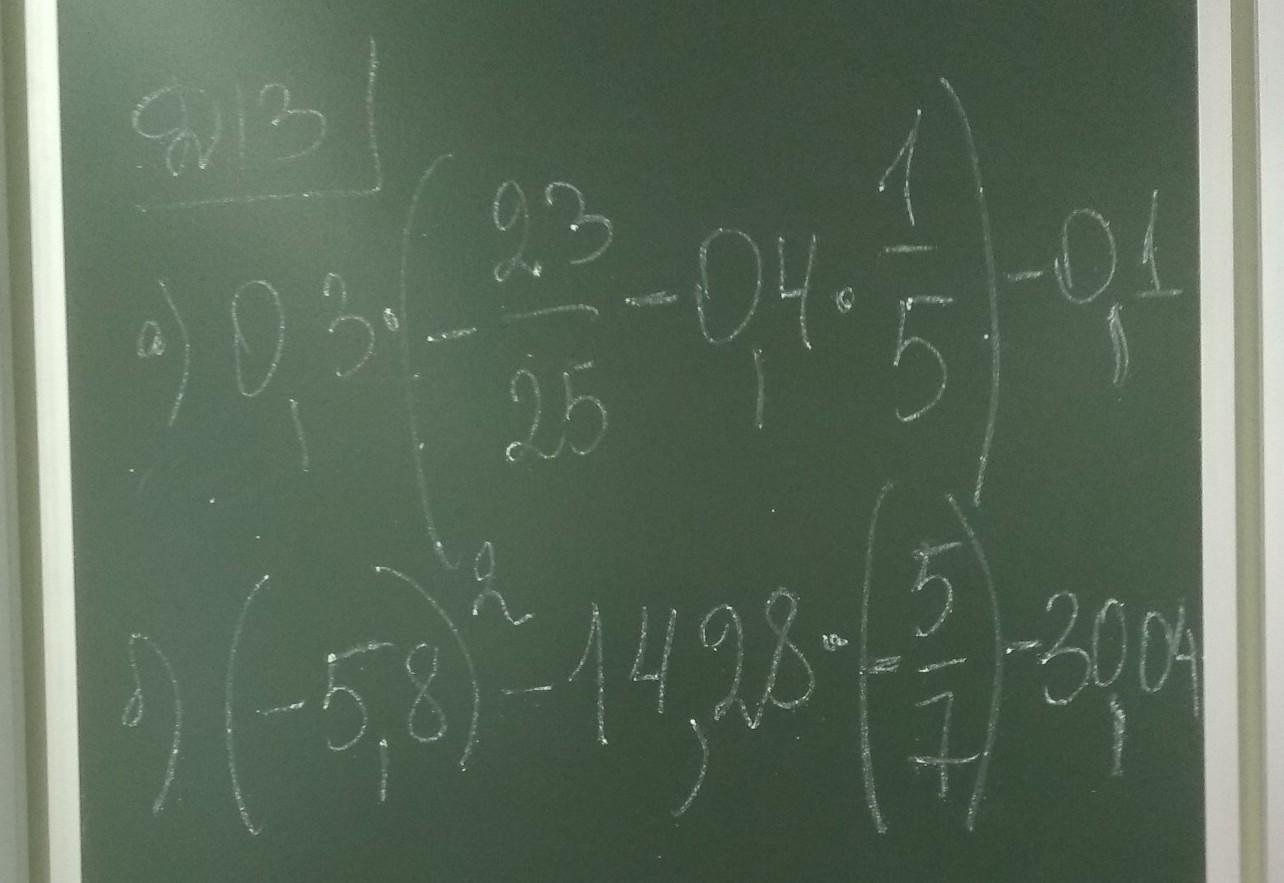 213
а) 0,3 · (- 23/25 - 0,4 · 1/5) - 0,1
б) (-5,8)² - 14,28 · (- 5/7) - 30,04